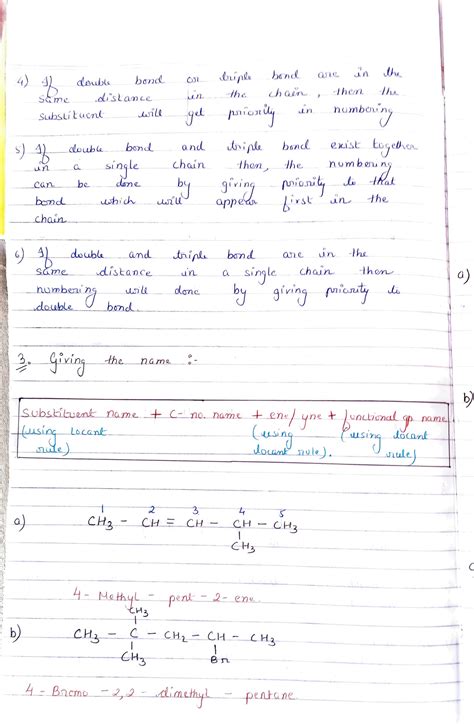 4) If double bond or triple bond are in the
same distance in the chain, then the
substituent will get priority in numbering
5) If double bond and triple bond exist together
in a single chain then, the numbering
can be done by giving priority to that
bond which will appear first in the
chain.
6) If double and triple bond are in the
same distance in a single chain then
numbering will done by giving priority to
double bond.
3. Giving the name :-
Substituent name + C- no. name + ene/yne + functional gp name
(using locant rule) (using locant rule). (using locant rule)
a) 1 2 3 4 5
CH3 - CH = CH - CH - CH3
CH3
4- Methyl - pent - 2- ene
CH3
b) CH3 - C - CH2 - CH - CH3
CH3 Br
4 - Bromo - 2,2 - dimethyl - pentane
a)
b)
c